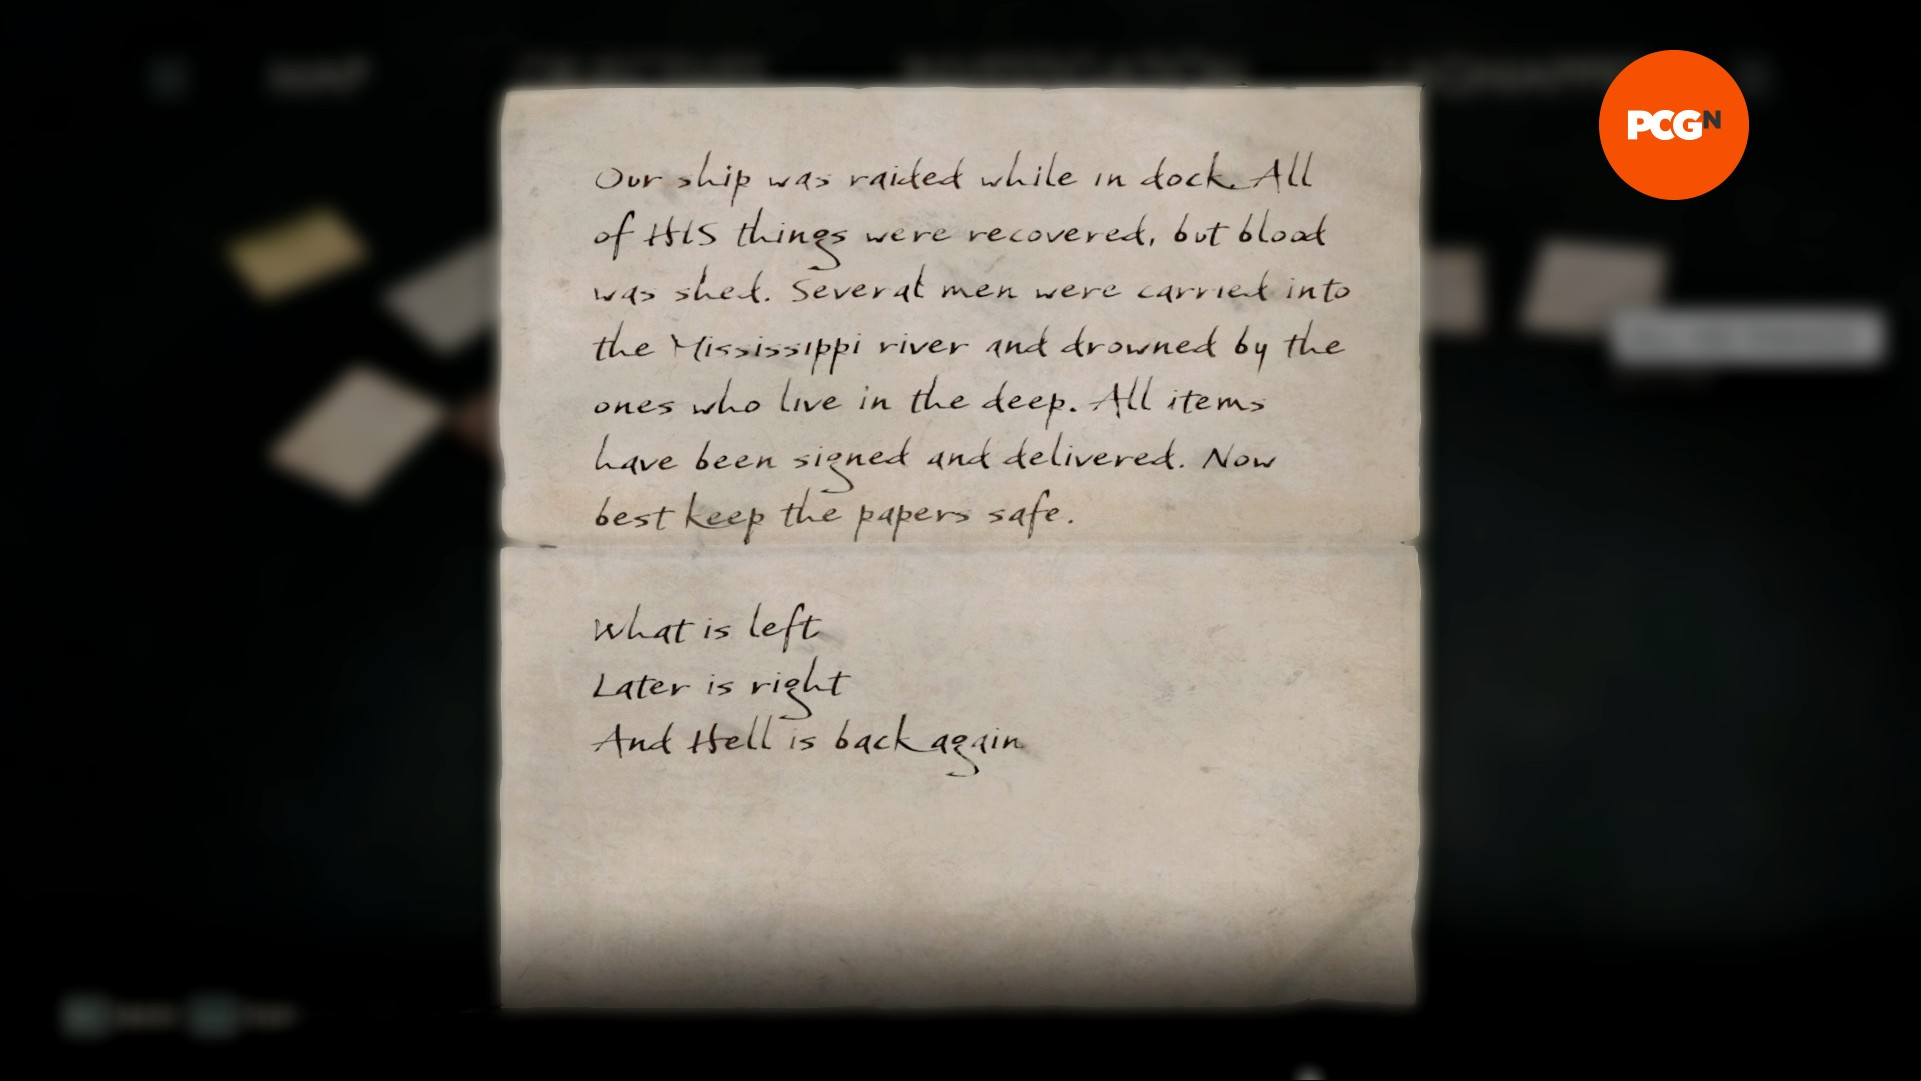 PCGN
Our ship was raided while in dock. All
of HIS things were recovered, but blood
was shed. Several men were carried into
the Mississippi river and drowned by the
ones who live in the deep. All items
have been signed and delivered. Now
best keep the papers safe.
What is left
Later is right
And Hell is back again